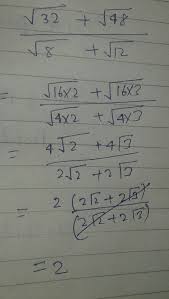 √32 + √48
√8 + √12
√16×2 + √16×3
√4×2 + √4×3
= 4√2 + 4√3
2√2 + 2√3
= 2 (2√2 + 2√3)
(2√2 + 2√3)
= 2